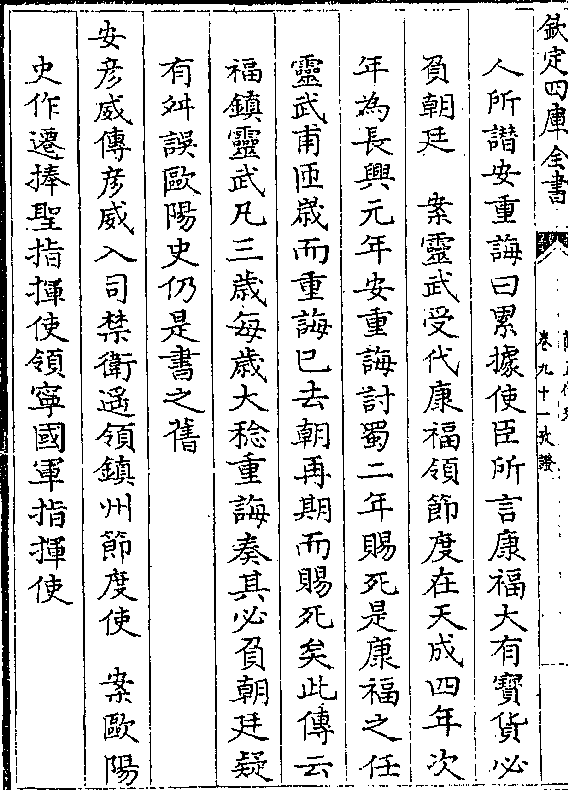 欽定四庫全書
卷九十一攷證
人所譖安重誨曰累據使臣所言康福大有寶貨必
負朝廷　案靈武受代康福領節度在天成四年次
年為長興元年安重誨討蜀二年賜死是康福之任
靈武甫匝歲而重誨已去朝再期而賜死矣此傳云
福鎮靈武凡三歲每歲大稔重誨奏其必負朝廷疑
有舛誤歐陽史仍是書之舊
安彦威傳彦威入司禁衛遥領鎮州節度使　案歐陽
史作遷捧聖指揮使領寧國軍指揮使